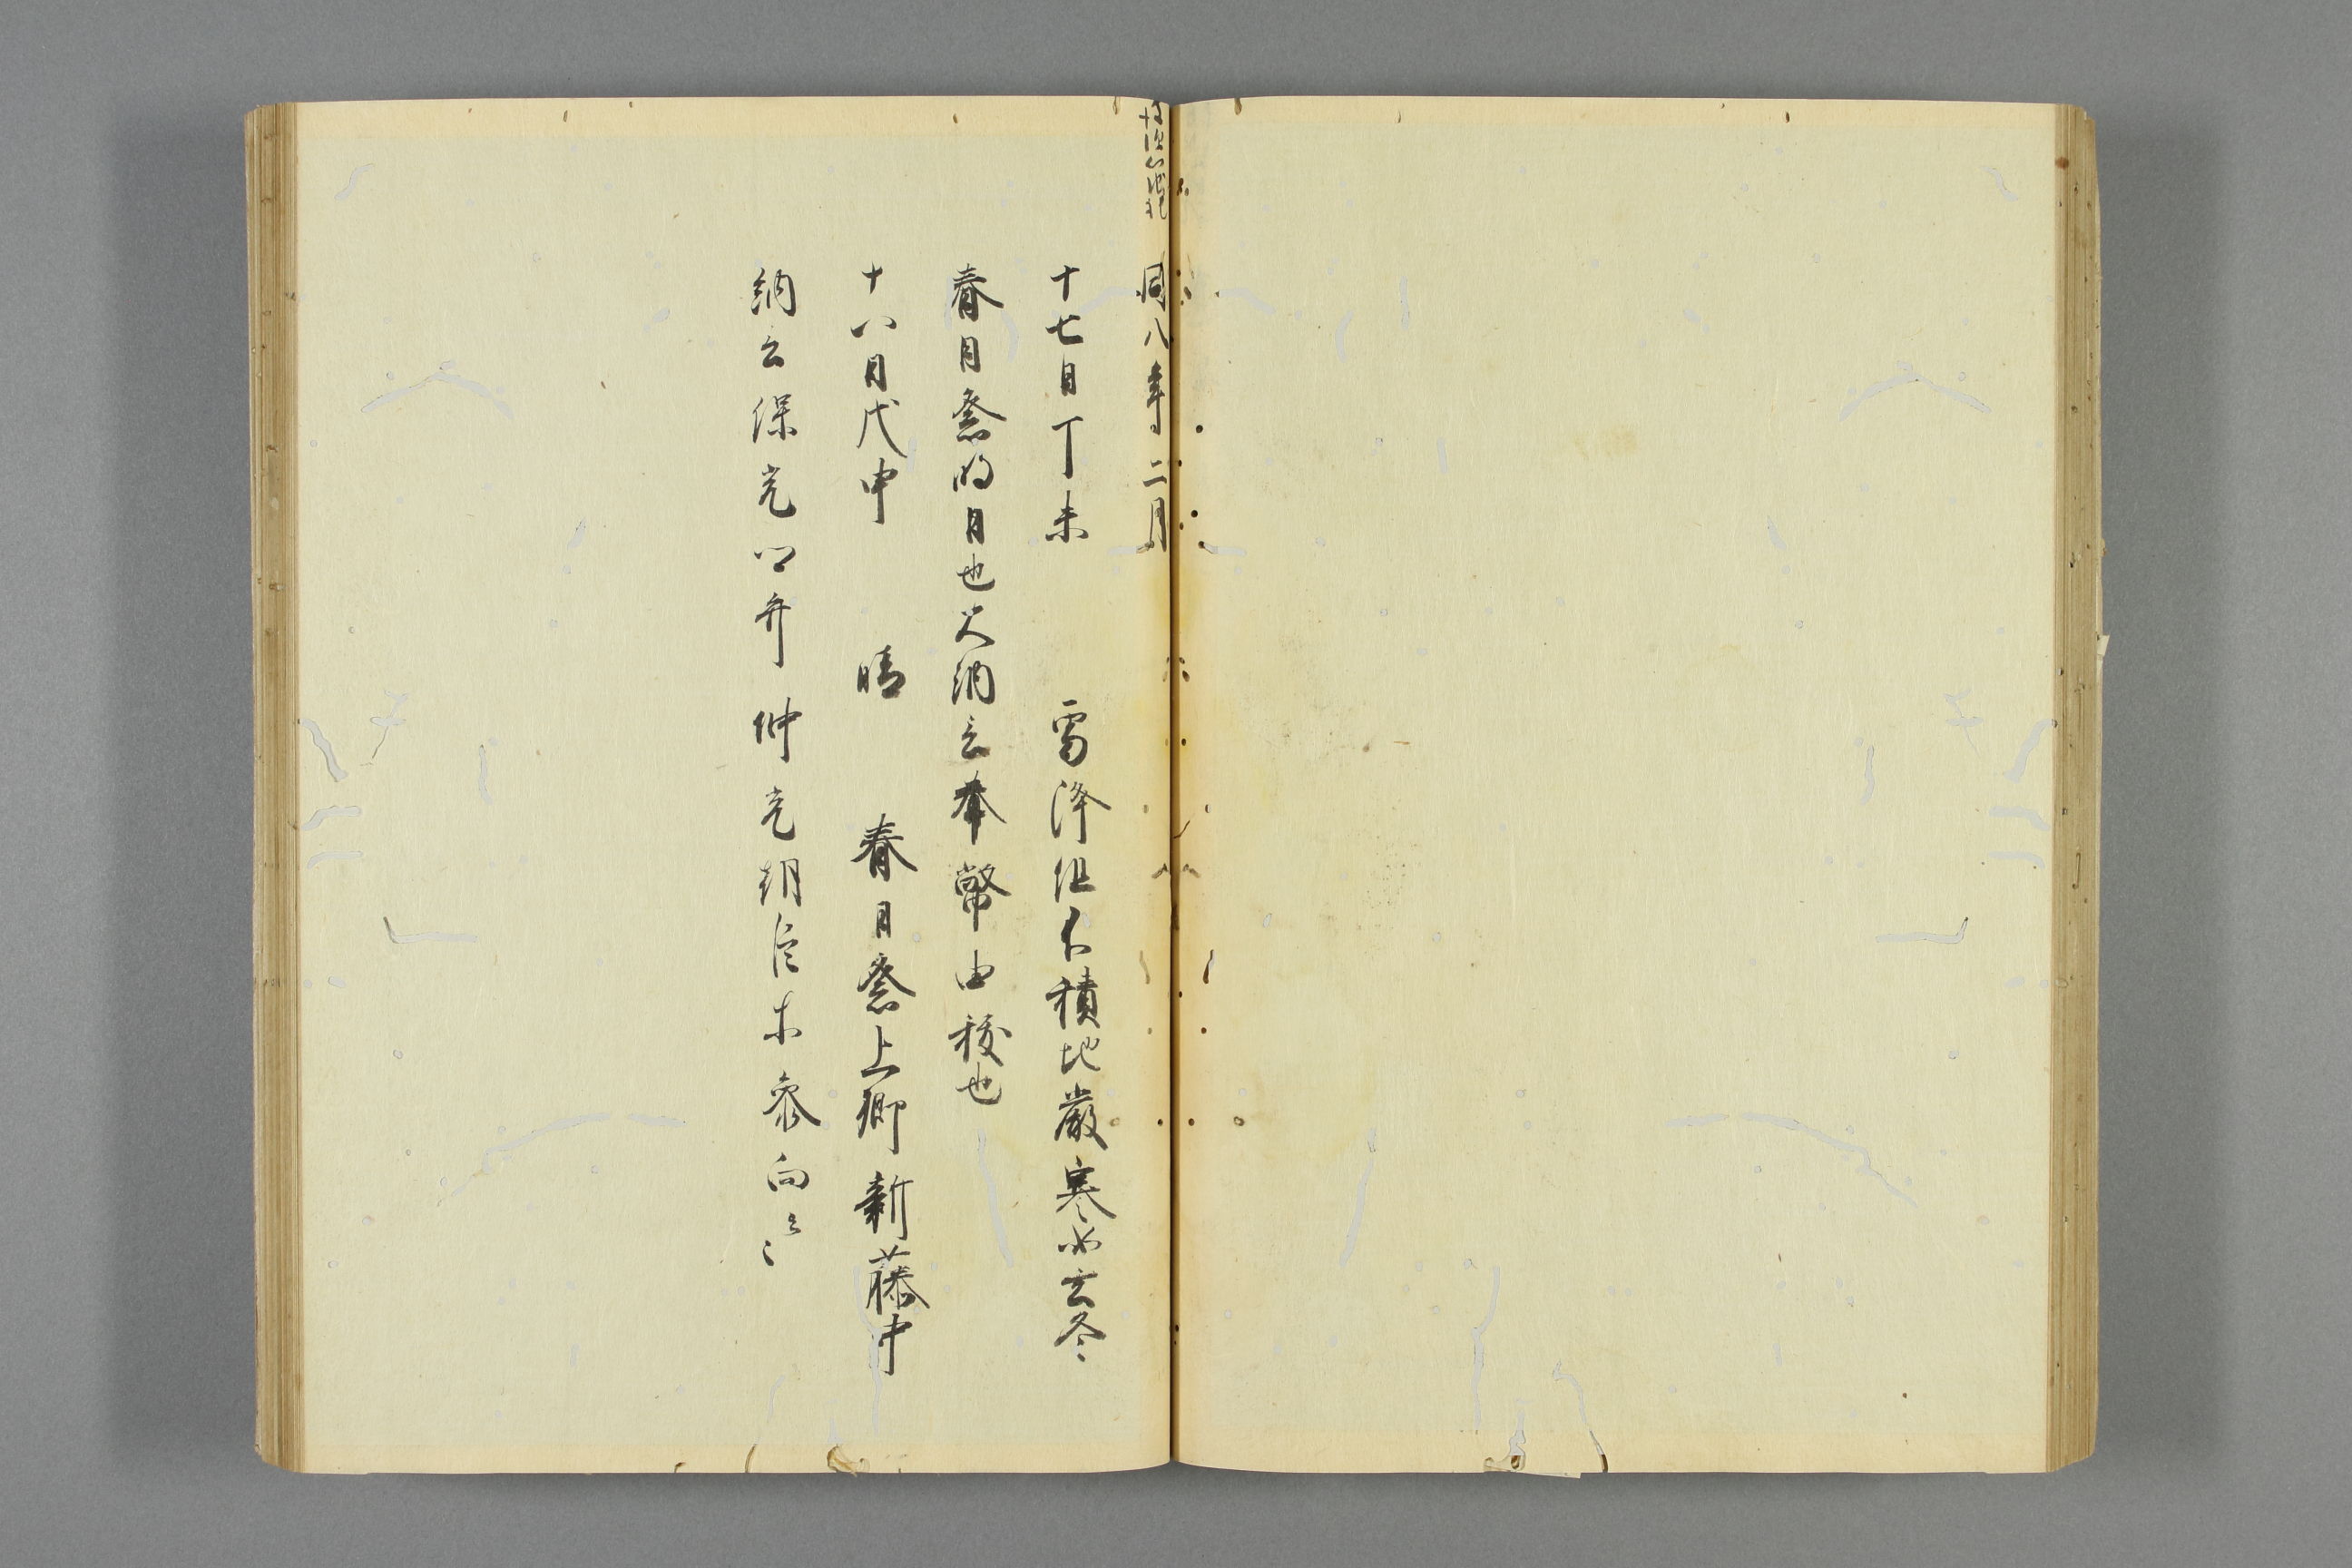 同八年二月
十七日丁未 雪降但不積地厳寒如去冬
春日祭内日也大納言奉幣由祓也
十八日戊申 晴 春日祭上卿新藤中
納言保光卿弁仲光朝臣等参向云々